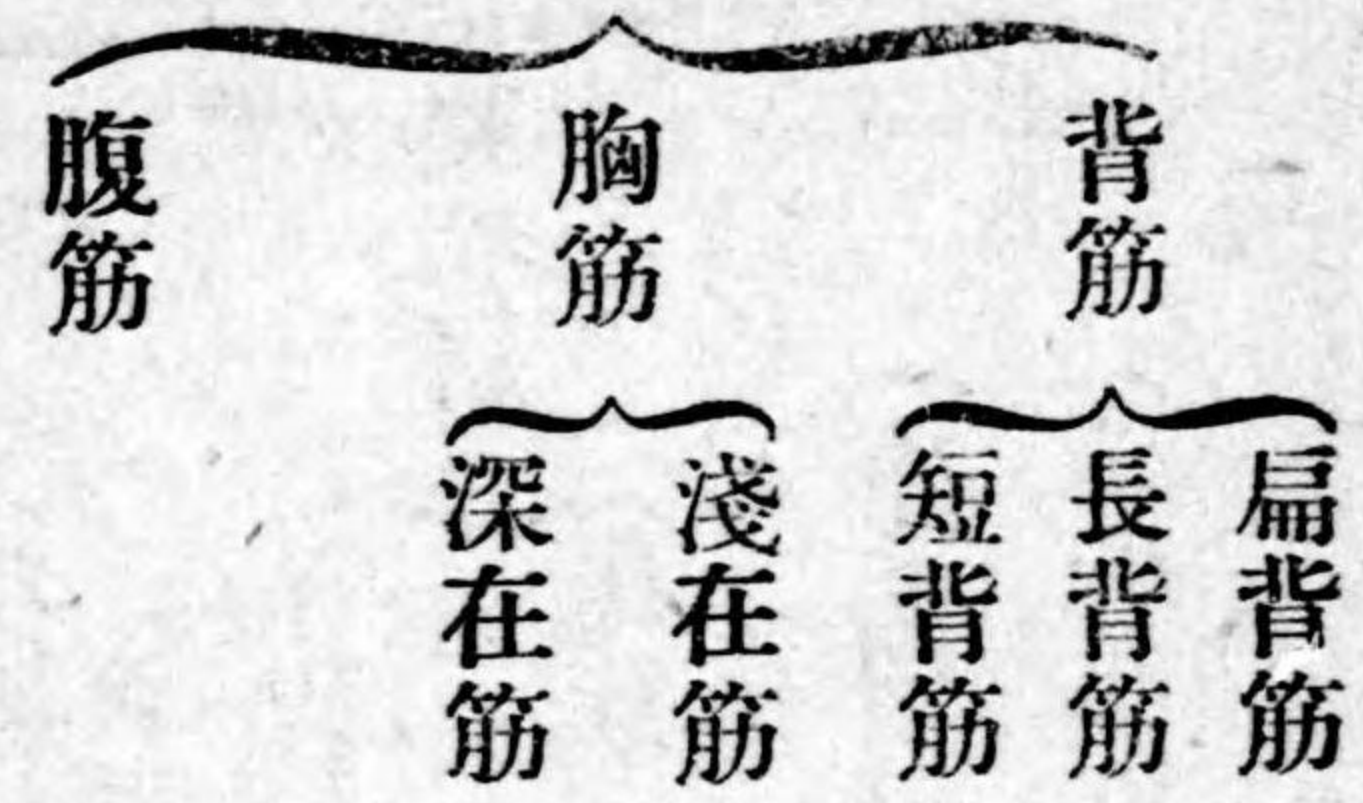 背筋
扁背筋
長背筋
短背筋
胸筋
淺在筋
深在筋
腹筋